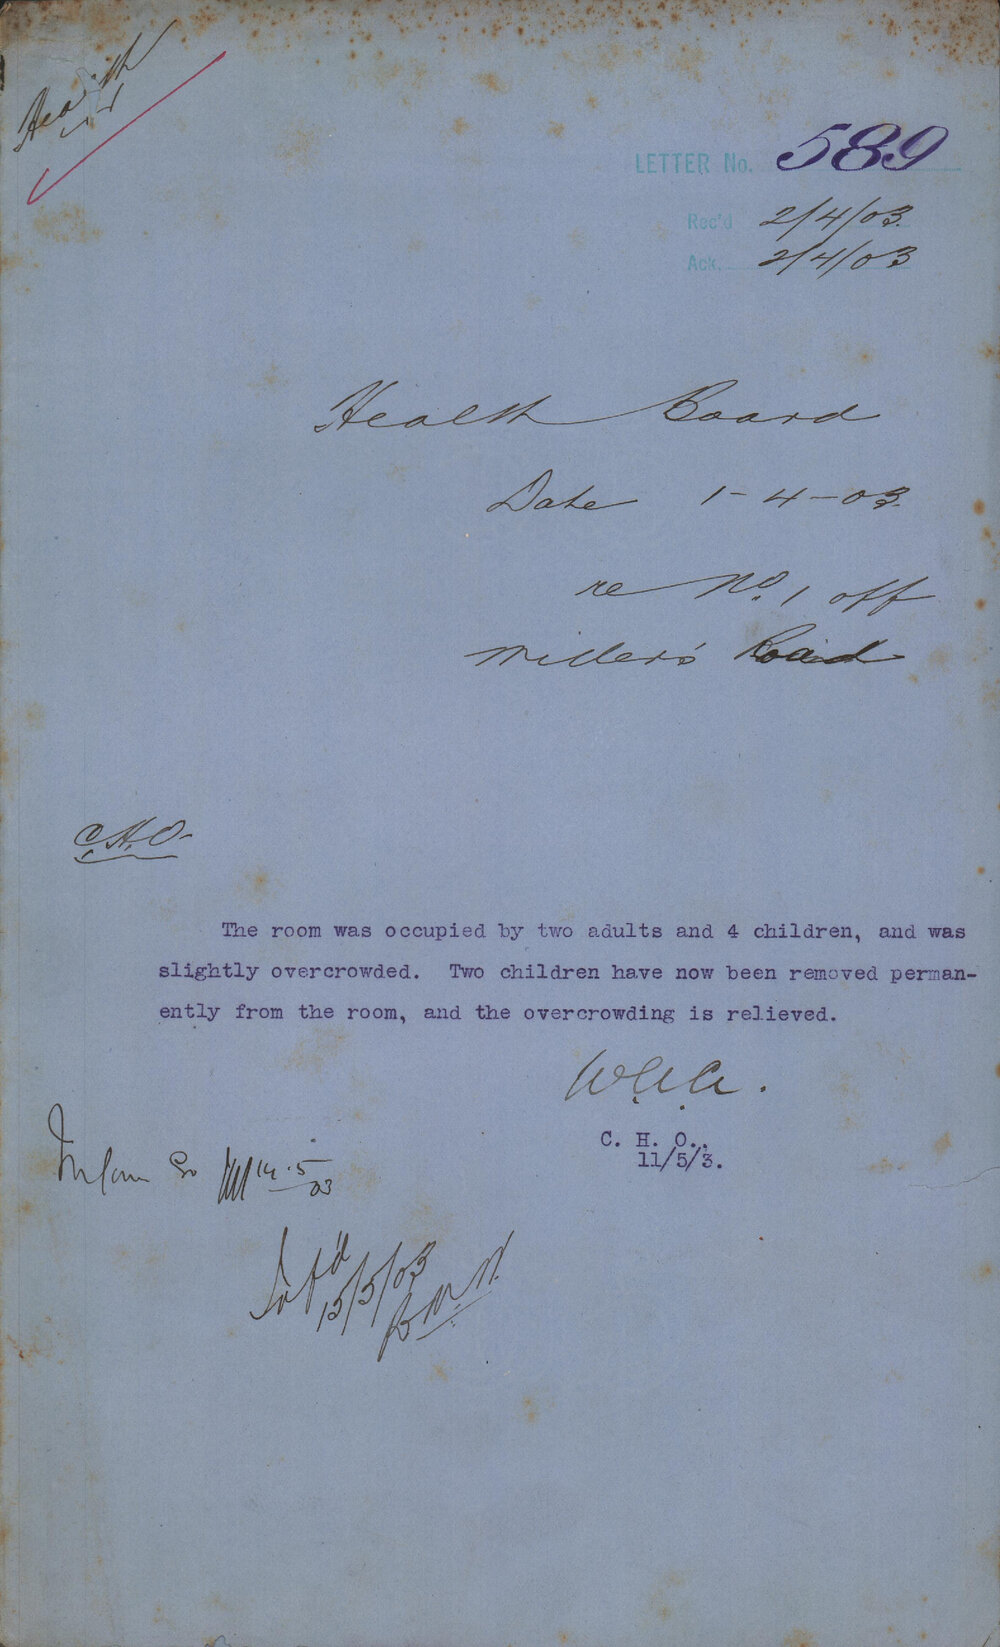 Health
LETTER No. 589
Rec'd 2/4/03.
Ack. 2/4/03
Health Board
Date 1-4-03.
re No. 1 off
Miller's Road
C.H.O.
The room was occupied by two adults and 4 children, and was
slightly overcrowded. Two children have now been removed perman-
ently from the room, and the overcrowding is relieved.
W.G.A.
C. H. O..
11/5/3.
Inform So 14.5
03
Inf'd
15/5/03